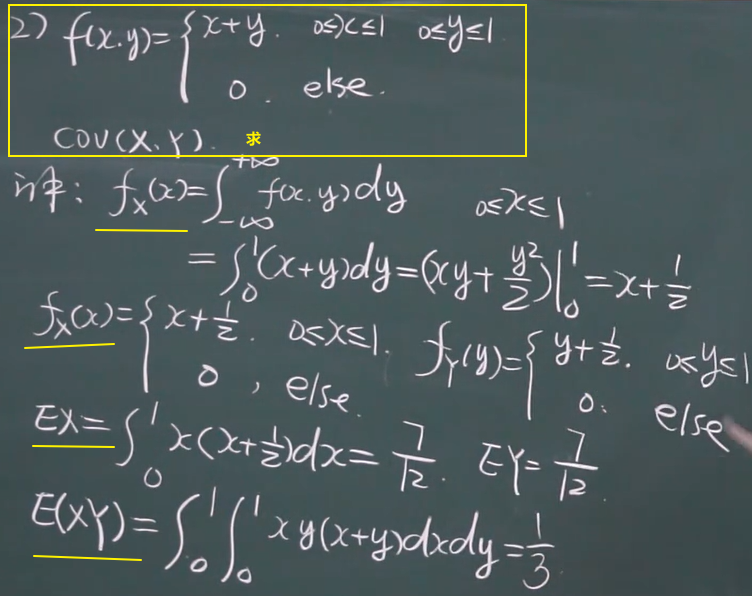 2) f(x.y)={x+y. 0≤x≤1 0≤y≤1
0. else.
COV(X.Y). 求
解: f_X(x)=∫_{-∞}^{+∞} f(x.y)dy 0≤x≤1
=∫_0^1(x+y)dy=(xy+y²/2)|_0^1=x+1/2
f_X(x)={x+1/2. 0≤x≤1. f_Y(y)={y+1/2. 0≤y≤1
0, else. 0. else
EX=∫_0^1 x(x+1/2)dx=7/12. EY=7/12.
E(XY)=∫_0^1∫_0^1 xy(x+y)dxdy=1/3